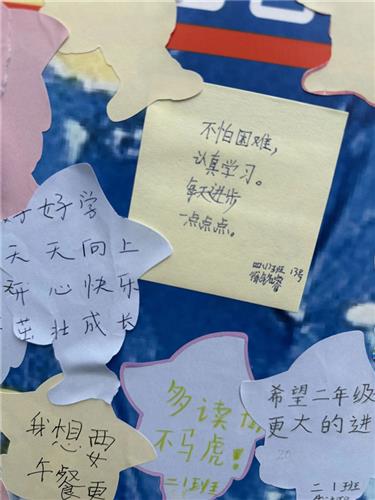 不怕困难，
认真学习。
每天进步
一点点点。
四(1)班 13号
好好学
天天向上
开心快乐
茁壮成长
我想要
午餐更
多读
不马虎！
二(1)班
希望二年级
更大的进
二(1)班